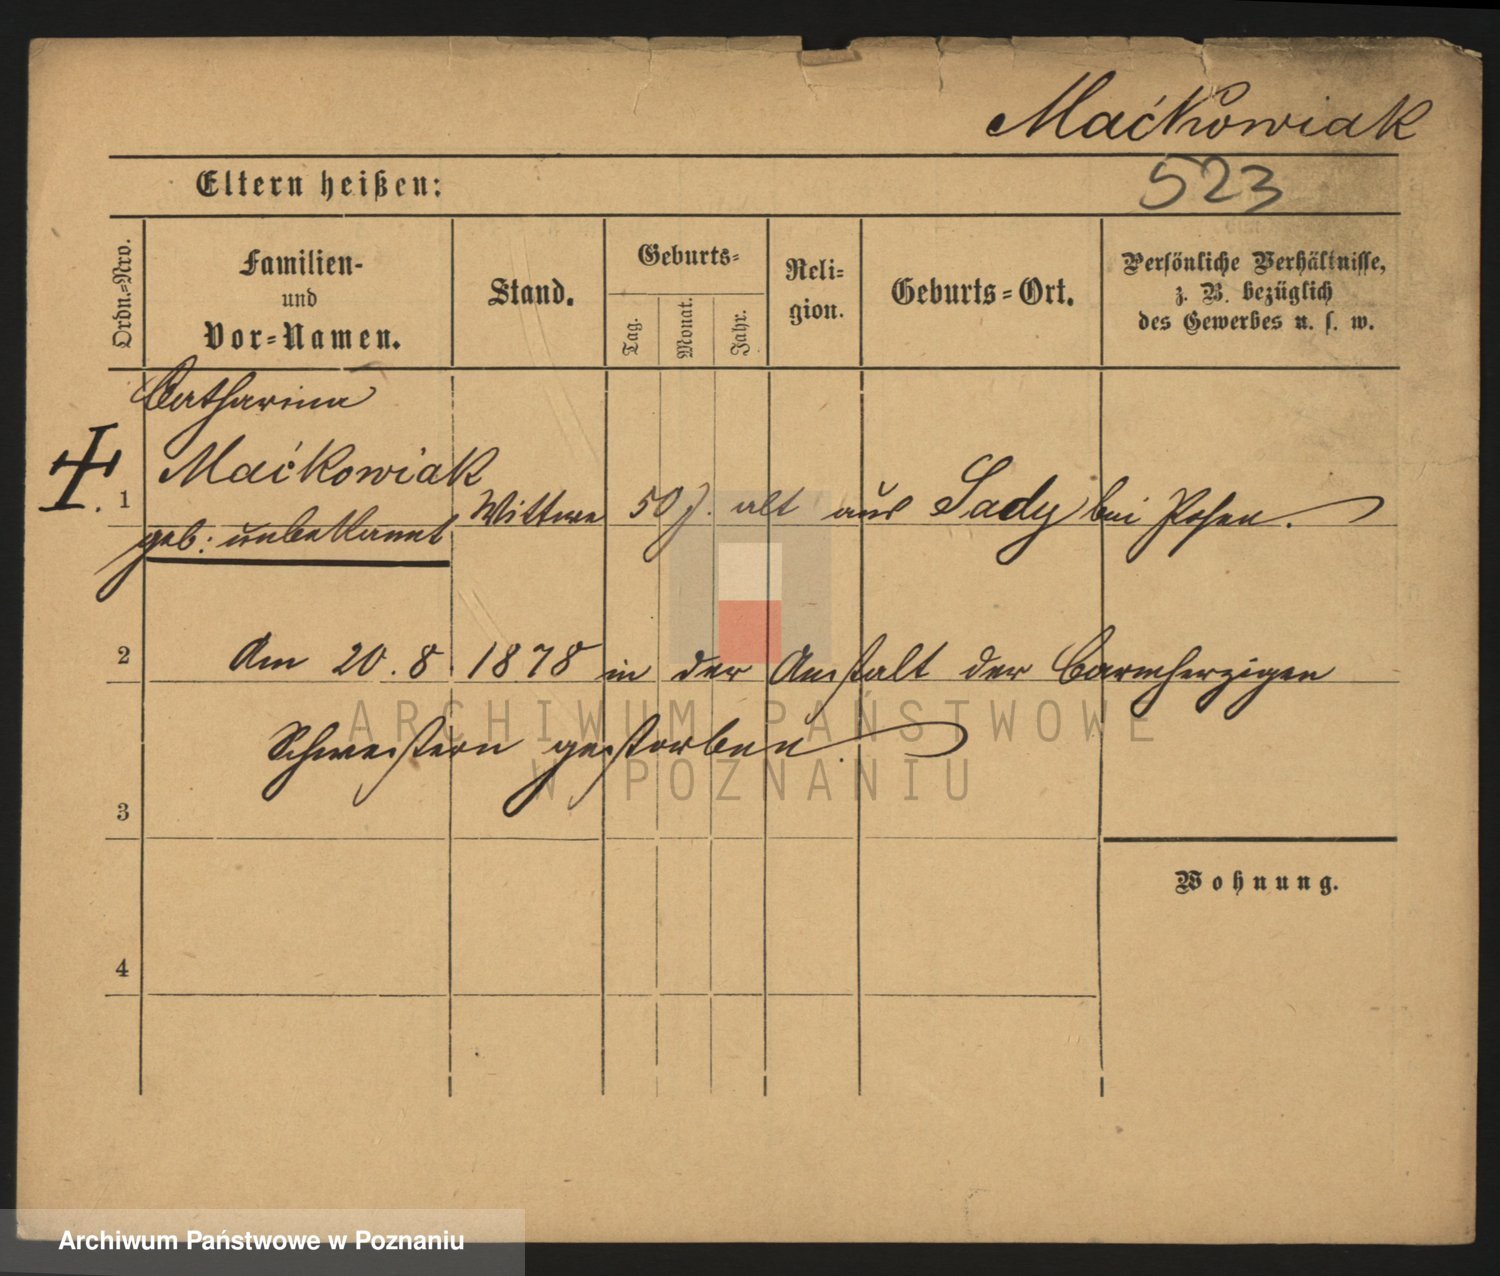 Maćkowiak
Eltern heißen:
523
Ordn.=Nro.
Familien-
und
Vor=Namen.
Stand.
Geburts=
Tag.
Monat.
Jahr.
Reli=
gion.
Geburts=Ort.
Persönliche Verhältnisse,
z. B. bezüglich
des Gewerbes u. s. w.
Catharina
Maćkowiak
1
Wittwe 50 J. alt aus Sady bei Posen.
geb: unbekannt
2
Am 20.8.1878 in der Anstalt der Barmherzigen
Schwestern gestorben.
3
Wohnung.
4
ARCHIWUM PAŃSTWOWE
W POZNANIU
Archiwum Państwowe w Poznaniu